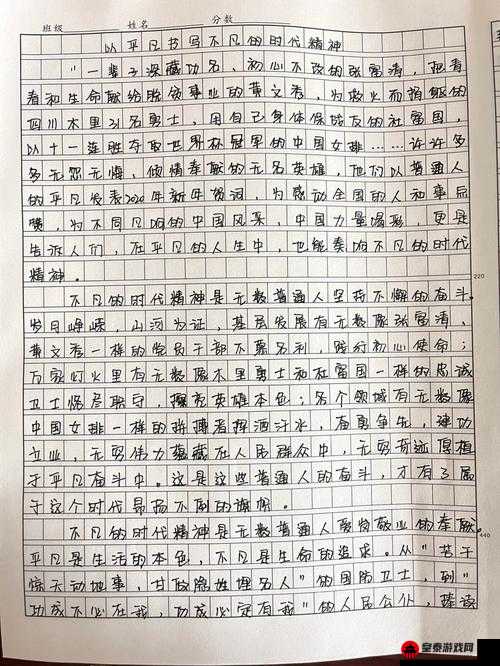 班级 姓名 分数
以平凡书写不凡的时代精神
"一辈子深藏功名、初心不改的张富清,把青
春和生命献给脱贫事业的黄文秀,为救火而牺牲的
四川木里31名勇士,用自己身体保战友的杜富国,
以十一连胜夺取世界杯冠军的中国女排……许许多
多无怨无悔、倾情奉献的无名英雄,他们以普通人
的平凡发表2020年新年贺词,为感动全国的人和事点
赞,为不同凡响的中国风采、中国力量喝彩,更是
告诉人们,在平凡的人生中,也能奏响不凡的时代
精神。
220
不凡的时代精神是无数普通人坚持不懈的奋斗。
岁月峥嵘,山河为证,基层发展有无数像张富清、
黄文秀一样的党员干部不慕名利,践行初心使命;
万家灯火里有无数像木里勇士和杜富国一样的忠诚
卫士恪尽职守,擦亮英雄本色;各个领域有无数像
中国女排一样的拼搏者挥洒汗水,奋勇争先,建功
立业,无穷伟力蕴藏在人民群众中,无穷奇迹深植
于平凡奋斗中。这是这些普通人的奋斗,才有了属
于这个时代昂扬不倒的旗帜。
不凡的时代精神是无数普通人爱岗敬业的奉献。
440
平凡是生活的本色,不凡是生命的追求。从"苦干
惊天动地事,甘做隐姓埋名人"的国防卫士,到"
功成不必在我,功成必定有我"的人民公仆,
皇泰游戏网